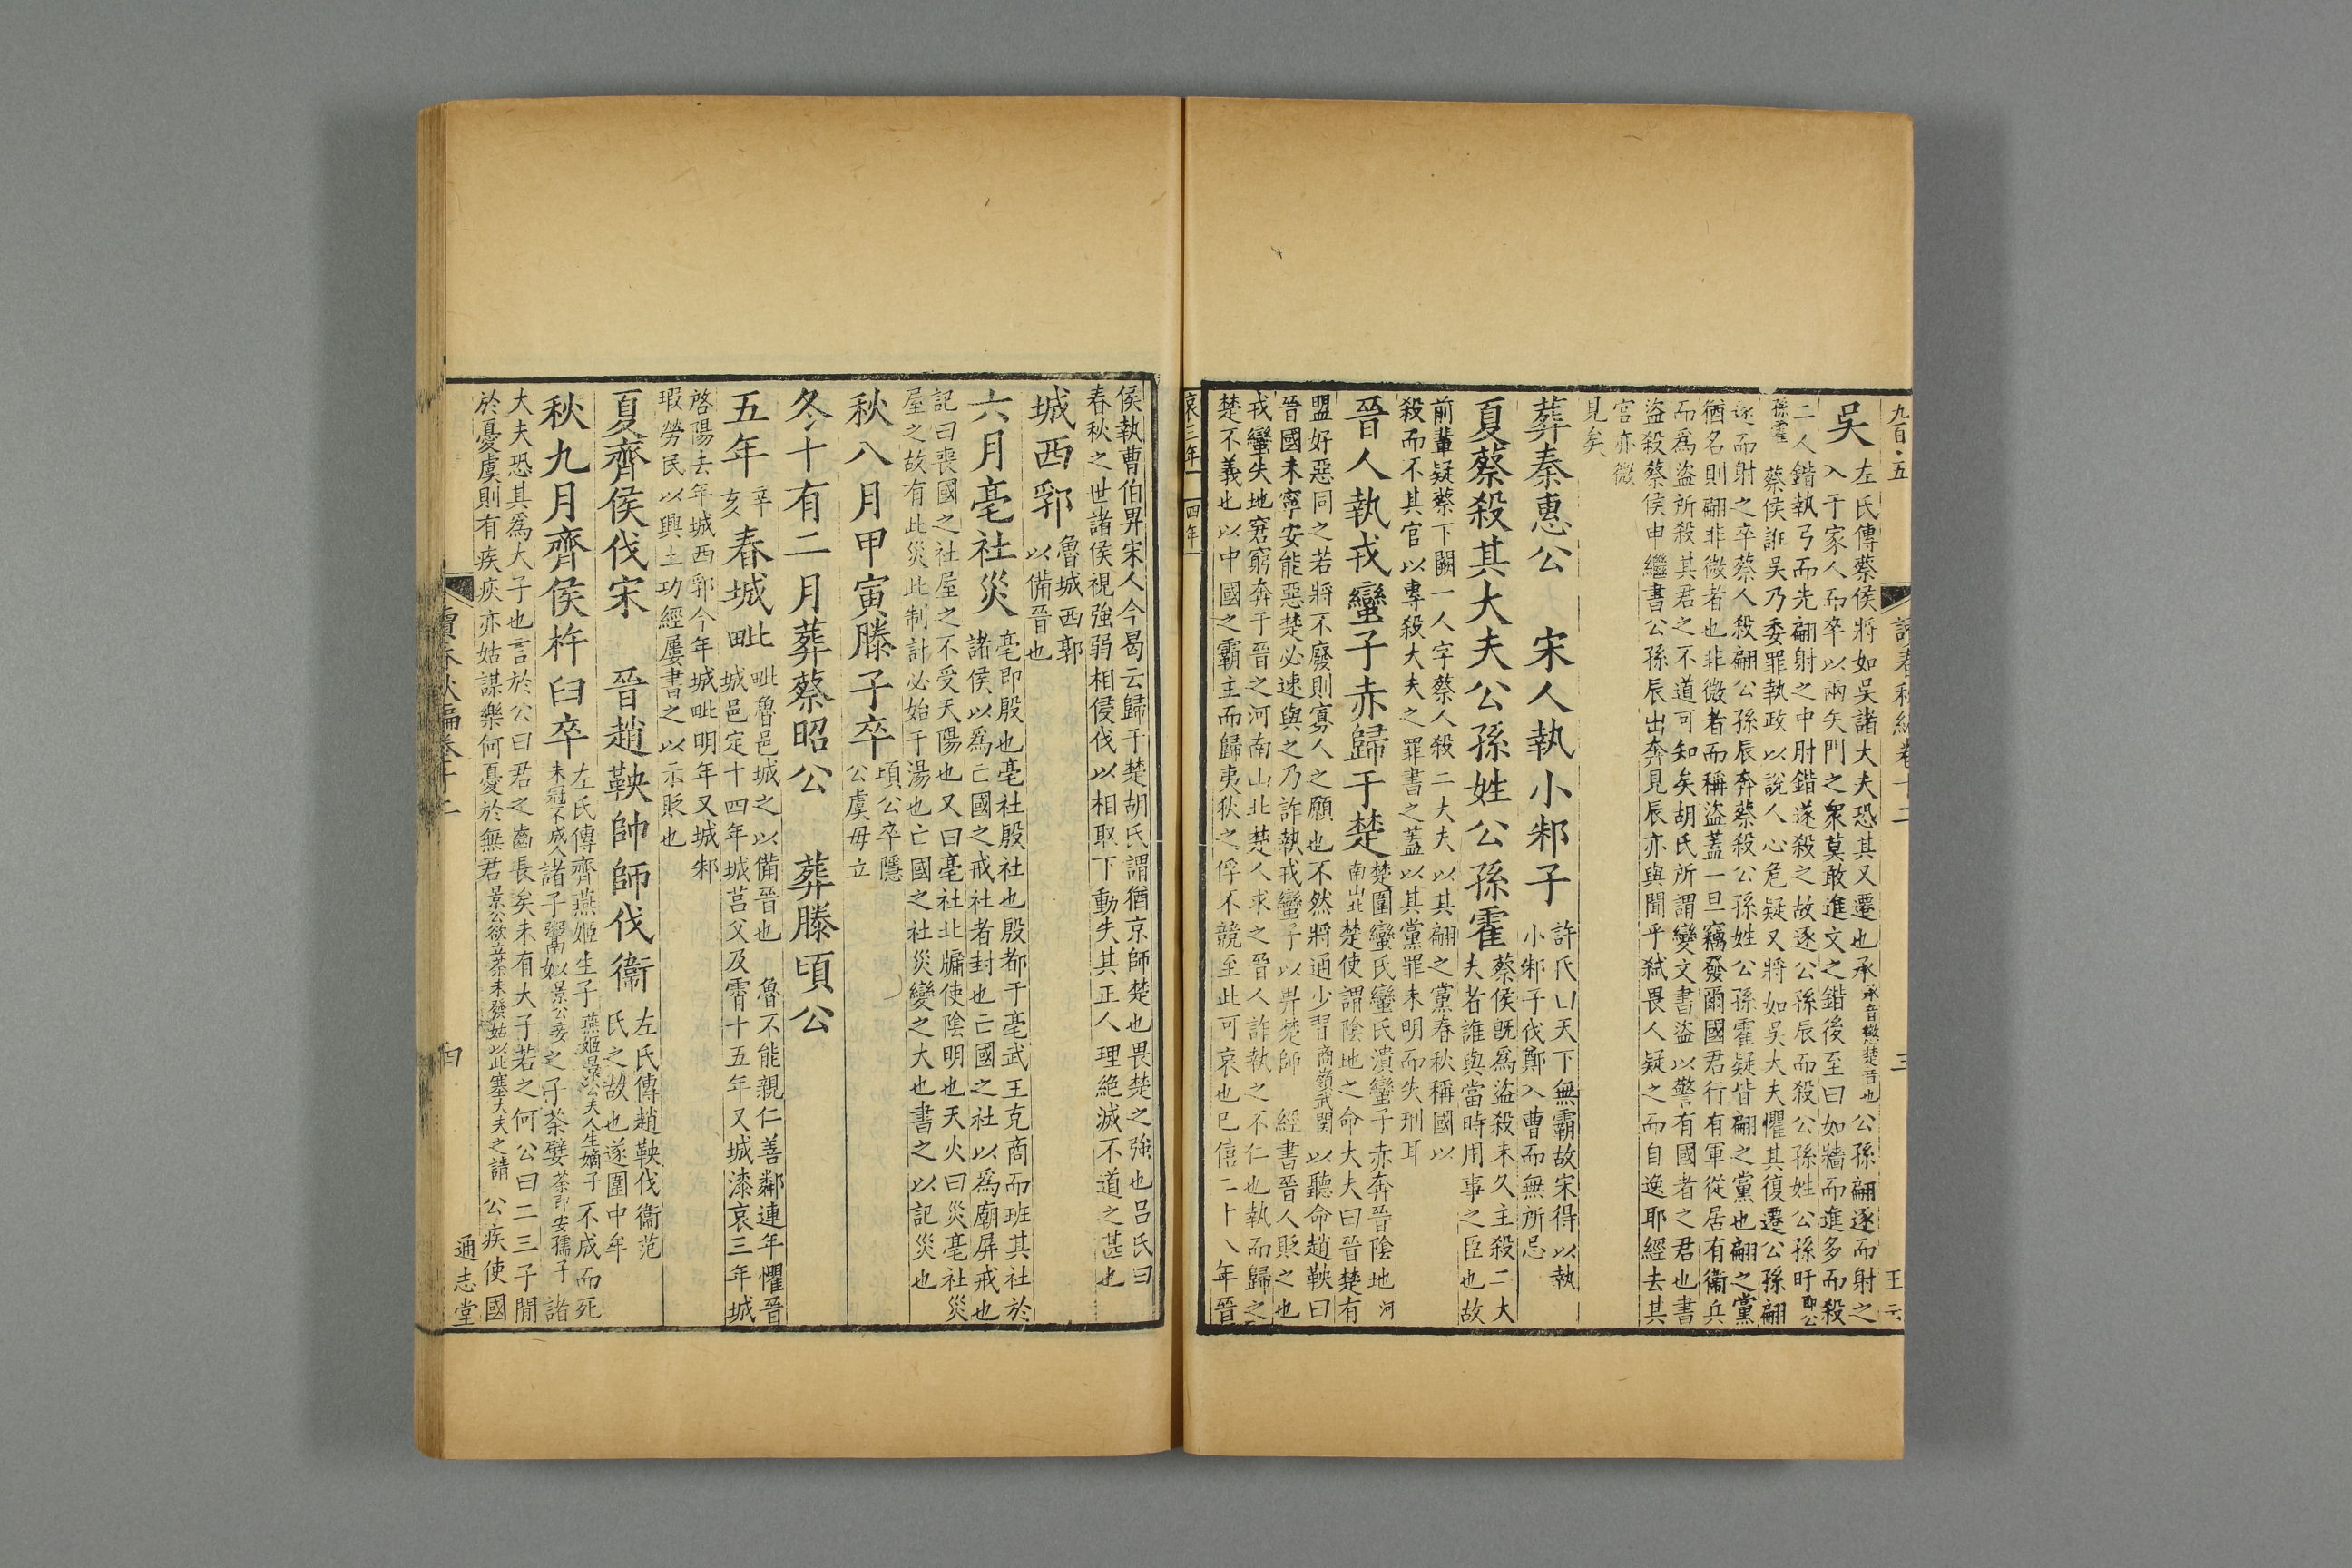 九百·五
讀春秋編卷十二
三
王云
吳
左氏傳蔡侯將如吳諸大夫恐其又遷也承承音懲楚音也公孫翩逐而射之
入于家人而卒以兩矢門之衆莫敢進文之鍇後至曰如牆而進多而殺
二人鍇執弓而先翩射之中肘鍇遂殺之故逐公孫辰而殺公孫姓公孫盱即公
孫霍
蔡侯誑吳乃委罪執政以說人心危疑又將如吳大夫懼其復遷公孫翩
逐而射之卒蔡人殺翩公孫辰奔蔡殺公孫姓公孫霍疑皆翩之黨也翩之黨
猶名則翩非微者也非微者而稱盜蓋一旦竊發爾國君行有軍從居有衞兵
而爲盜所殺其君之不道可知矣胡氏所謂變文書盜以警有國者之君也書
盜殺蔡侯申繼書公孫辰出奔見辰亦與聞乎弑畏人疑之而自逸耶經去其
宮亦微
見矣
葬秦惠公
宋人執小邾子
許氏曰天下無霸故宋得以執
小邾子伐鄭入曹而無所忌
夏蔡殺其大夫公孫姓公孫霍
蔡侯旣爲盜殺未久主殺二大
夫者誰與當時用事之臣也故
前輩疑蔡下闕一人字蔡人殺二大夫以其翩之黨春秋稱國以
殺而不其官以專殺大夫之罪書之蓋以其黨罪未明而失刑耳
晉人執戎蠻子赤歸于楚
楚圍蠻氏蠻氏潰蠻子赤奔晉陰地河
南山北楚使謂陰地之命大夫曰晉楚有
盟好惡同之若將不廢則寡人之願也不然將通少習商領武関以聽命趙鞅曰
晉國未寧安能惡楚必速與之乃詐執戎蠻子以畀楚師
經書晉人貶之也
戎蠻失地窘窮奔于晉之河南山北楚人求之晉人詐執之不仁也執而歸之
楚不義也以中國之霸主而歸夷狄之俘不競至此可哀也已僖二十八年晉
哀三年
四年
侯執曹伯畀宋人今曷云歸于楚胡氏謂猶京師楚也畏楚之強也吕氏曰
春秋之世諸侯視強弱相侵伐以相取下動失其正人理絶滅不道之甚也
城西郛
魯城西郭
以備晉也
六月亳社災
亳即殷也亳社殷社也殷都于亳武王克商而班其社於
諸侯以爲亡國之戒社者封也亡國之社以爲廟屏戒也
記曰喪國之社屋之不受天陽也又曰亳社北牖使陰明也天火曰災亳社災
屋之故有此災此制計必始于湯也亡國之社災變之大也書之以記災也
秋八月甲寅滕子卒
頃公卒隱
公虞毋立
冬十有二月葬蔡昭公
葬滕頃公
五年
辛
亥
春城毗
毗魯邑城之以備晉也
魯不能親仁善鄰連年懼晉
城邑定十四年城莒父及霄十五年又城漆哀三年城
啓陽去年城西郛今年城毗明年又城邾
瑕勞民以興土功經屢書之以示貶也
夏齊侯伐宋
晉趙鞅帥師伐衞
左氏傳趙鞅伐衞范
氏之故也遂圍中牟
秋九月齊侯杵臼卒
左氏傳齊燕姬生子燕姬景公夫人生嫡子不成而死
未冠不成人諸子鬻姒景公妾之子荼嬖荼即安孺子諸
大夫恐其爲大子也言於公曰君之齒長矣未有大子若之何公曰二三子閒
於憂虞則有疾疢亦姑謀樂何憂於無君景公欲立荼未發姑以此塞大夫之請公疾使國
讀春秋編卷十二
四
通志堂